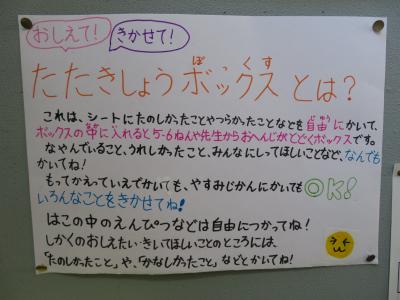 おしえて! きかせて!
たたきしょうボックスとは?
これは、シートにたのしかったことやつらかったことなどを自由にかいて、
ボックスの中に入れると5-6ねんや先生からおへんじがとどくボックスです。
なやんでいること、うれしかったこと、みんなにしってほしいことなど、なんでも
かいてね!
もってかえっていえでかいても、やすみじかんにかいてもOK!
いろんなことをきかせてね!
はこの中のえんぴつなどは自由につかってね!
しかくのおしえたい・きいてほしいことのところには、
「たのしかったこと」や、「かなしかったこと」などとかいてね!